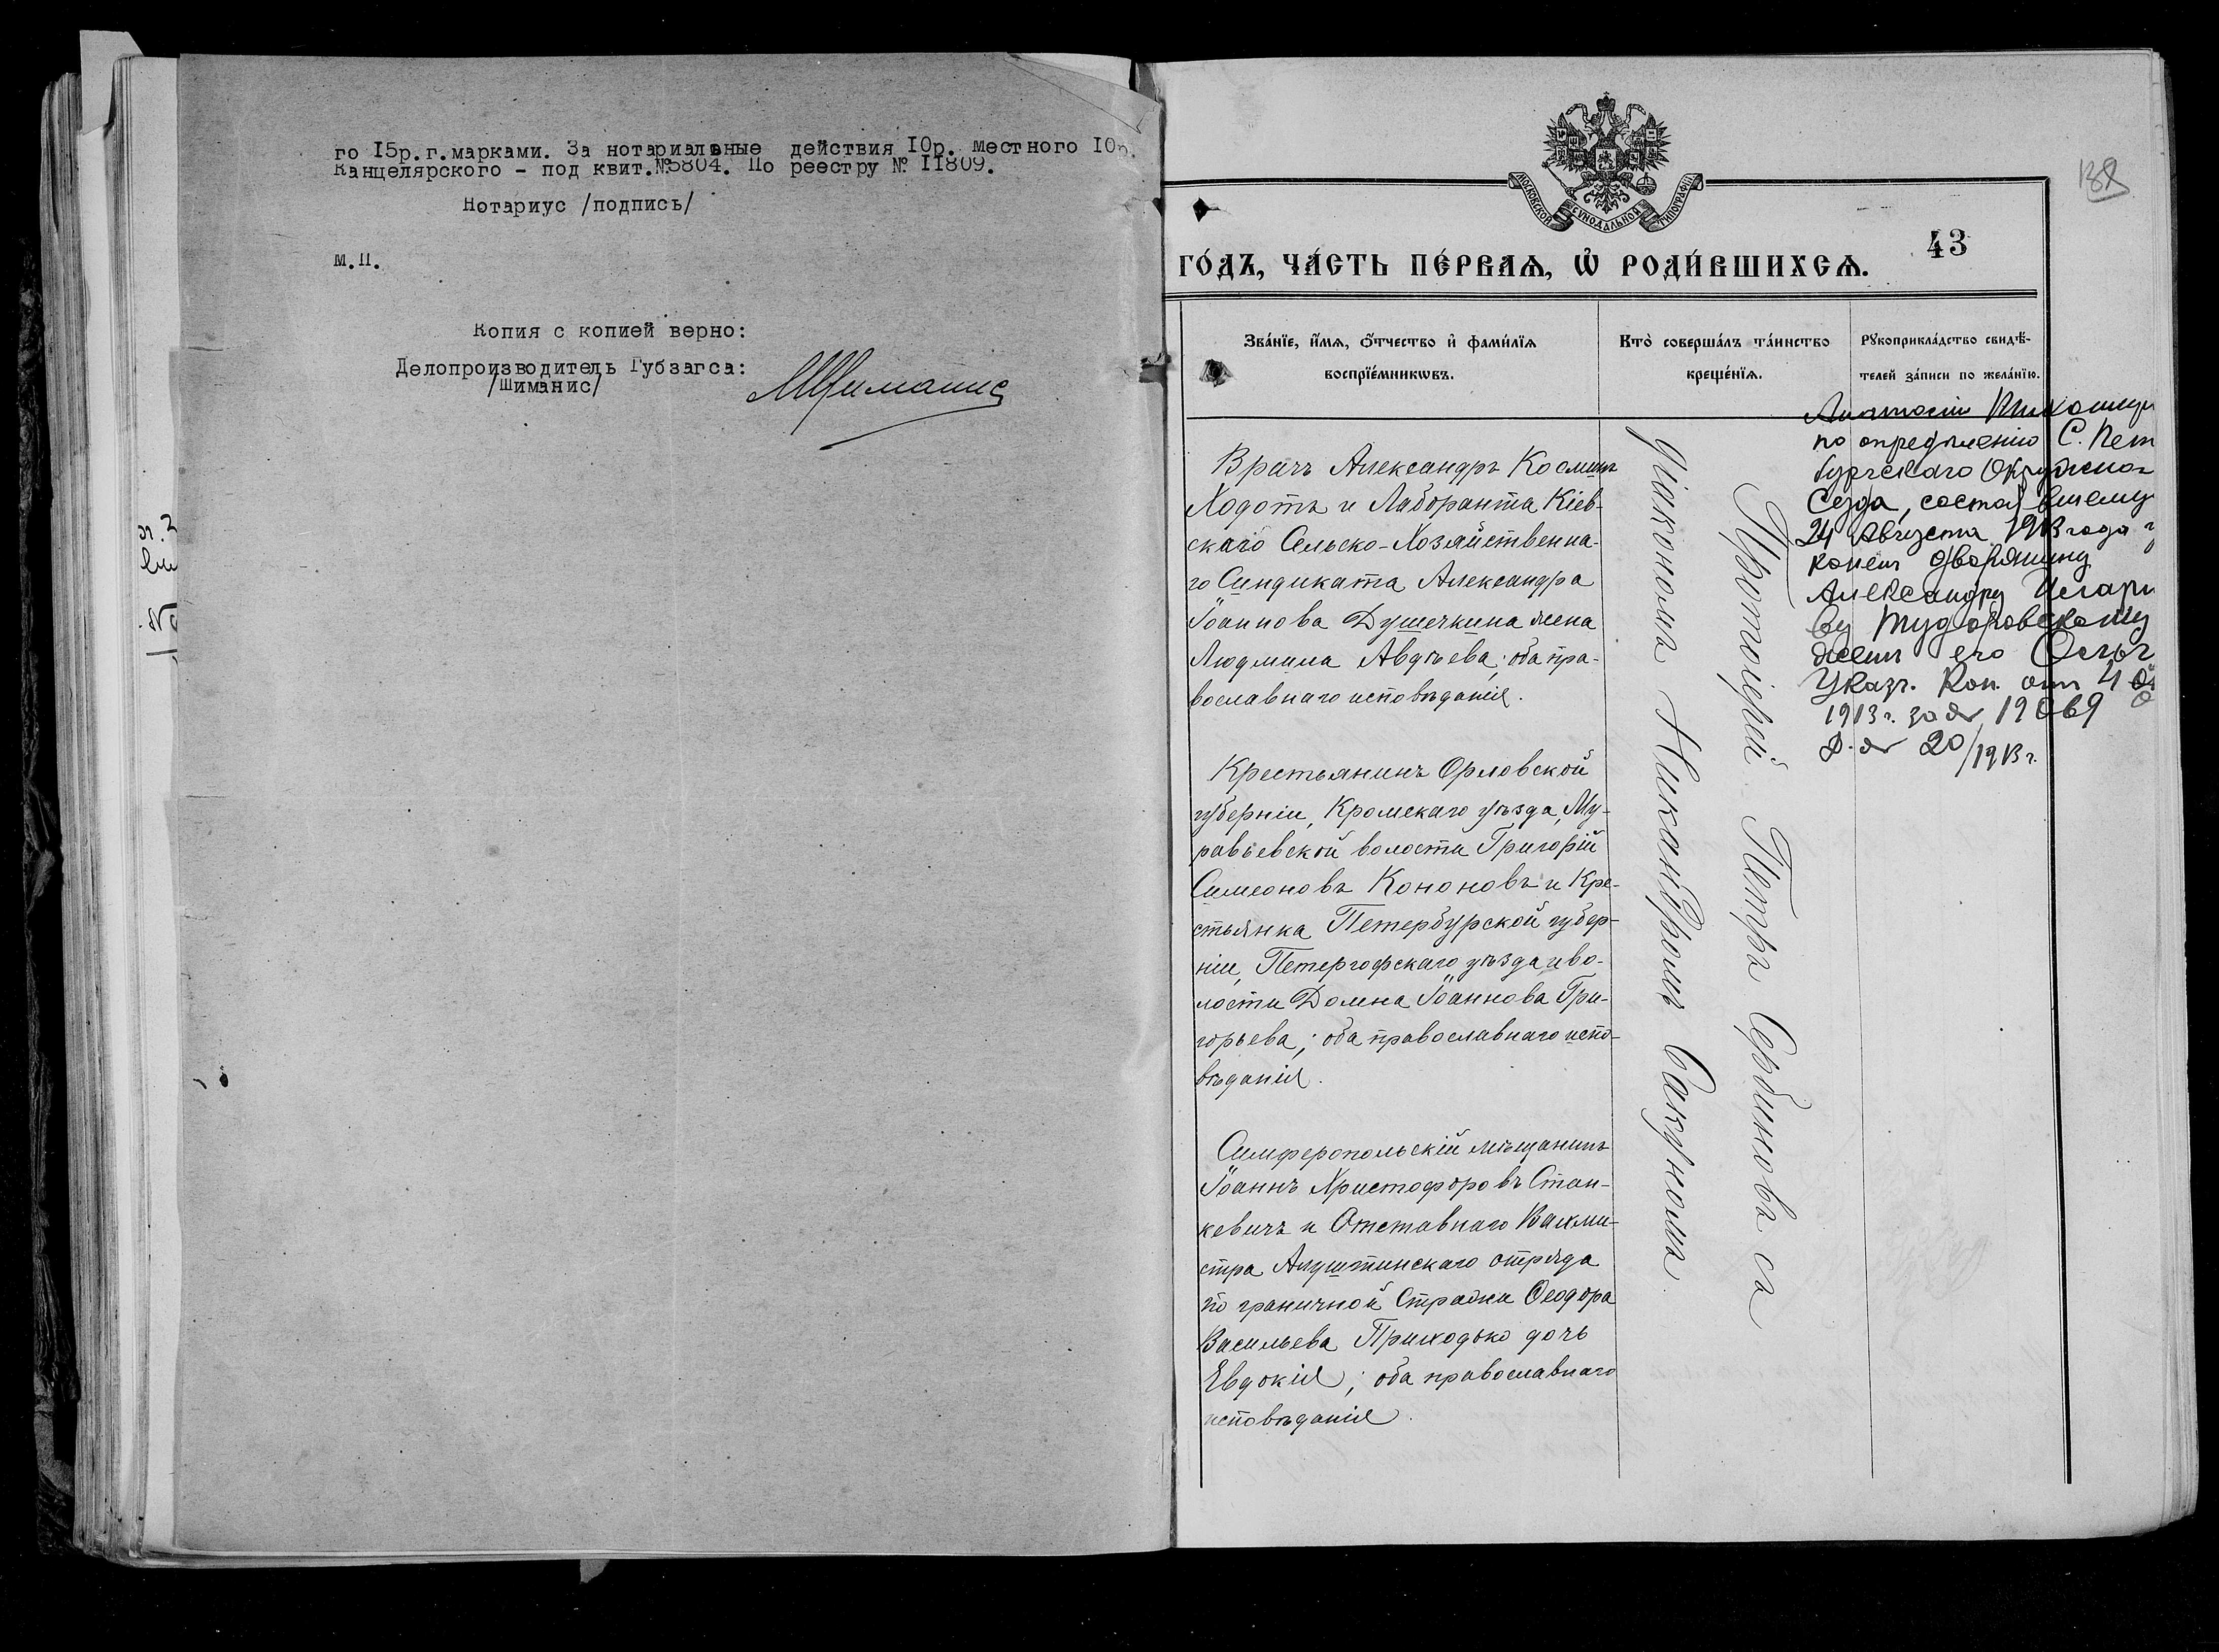 го 15р.г.марками. За нотариальные действия 10р. местного 10р.
Канцелярского - под квит.№5804. По реестру № 11809.
Нотариус /подпись/
М.П.
Копия с копией верно:
Делопроизводитель Губзагса:
/Шиманис/
МШиманис
МОСКОВСКОЙ СѴНОДАЛЬНОЙ ТИПОГРАФІИ
138
43
ГО́ДЪ, ЧА́СТЬ ПЕ́РВАѦ, Ѡ҆ РОДИ́ВШИХСѦ.
Зва́нїе, и҆́мѧ, ѻ҆́тчество и҆ фами́лїѧ
воспрїе́мникѡвъ.
Кто̀ соверша́лъ та́инство
креще́нїѧ.
Рꙋкоприкла́дство свидѣ́-
телей за́писи по жела́нїю.
Врачъ Александръ Косминъ
Ходотъ и Лаборанта Кіев-
скаго Сельско-Хозяйственна-
го Синдиката Александра
Іоаннова Душечкина жена
Людмила Авдѣева; оба пра-
вославнаго исповѣданія.
Крестьянинъ Орловской
губерніи, Кромскаго уѣзда, Му-
равьевской волости Григорій
Симеоновъ Кононовъ и Кре-
стьянка Петербурской губер-
ніи, Петергофскаго уѣзда и во-
лости Домна Іоаннова Гри-
горьева; оба православнаго испо-
вѣданія.
Симферопольскій мѣщанинъ
Іоаннъ Христофоровъ Стан-
кевичъ и Отставнаго Вахми-
стра Алуштинскаго отряда
пограничной Стражи Ѳеодора
Васильева Приходько дочь
Евдокія; оба православнаго
исповѣданія.
Протоіерей Петръ Сербиновъ съ
діакономъ Никаноромъ Сакуномъ
по опредѣленію С. Пет
бургскаго Окружног
Суда, состоявшему
24 Августа 1913 года
дворянину
Александру
ву Тудоровскому
женѣ его Ольг
Указъ. Кон. отъ 4
1913 г. за № 19069
Д. № 20/1913 г.